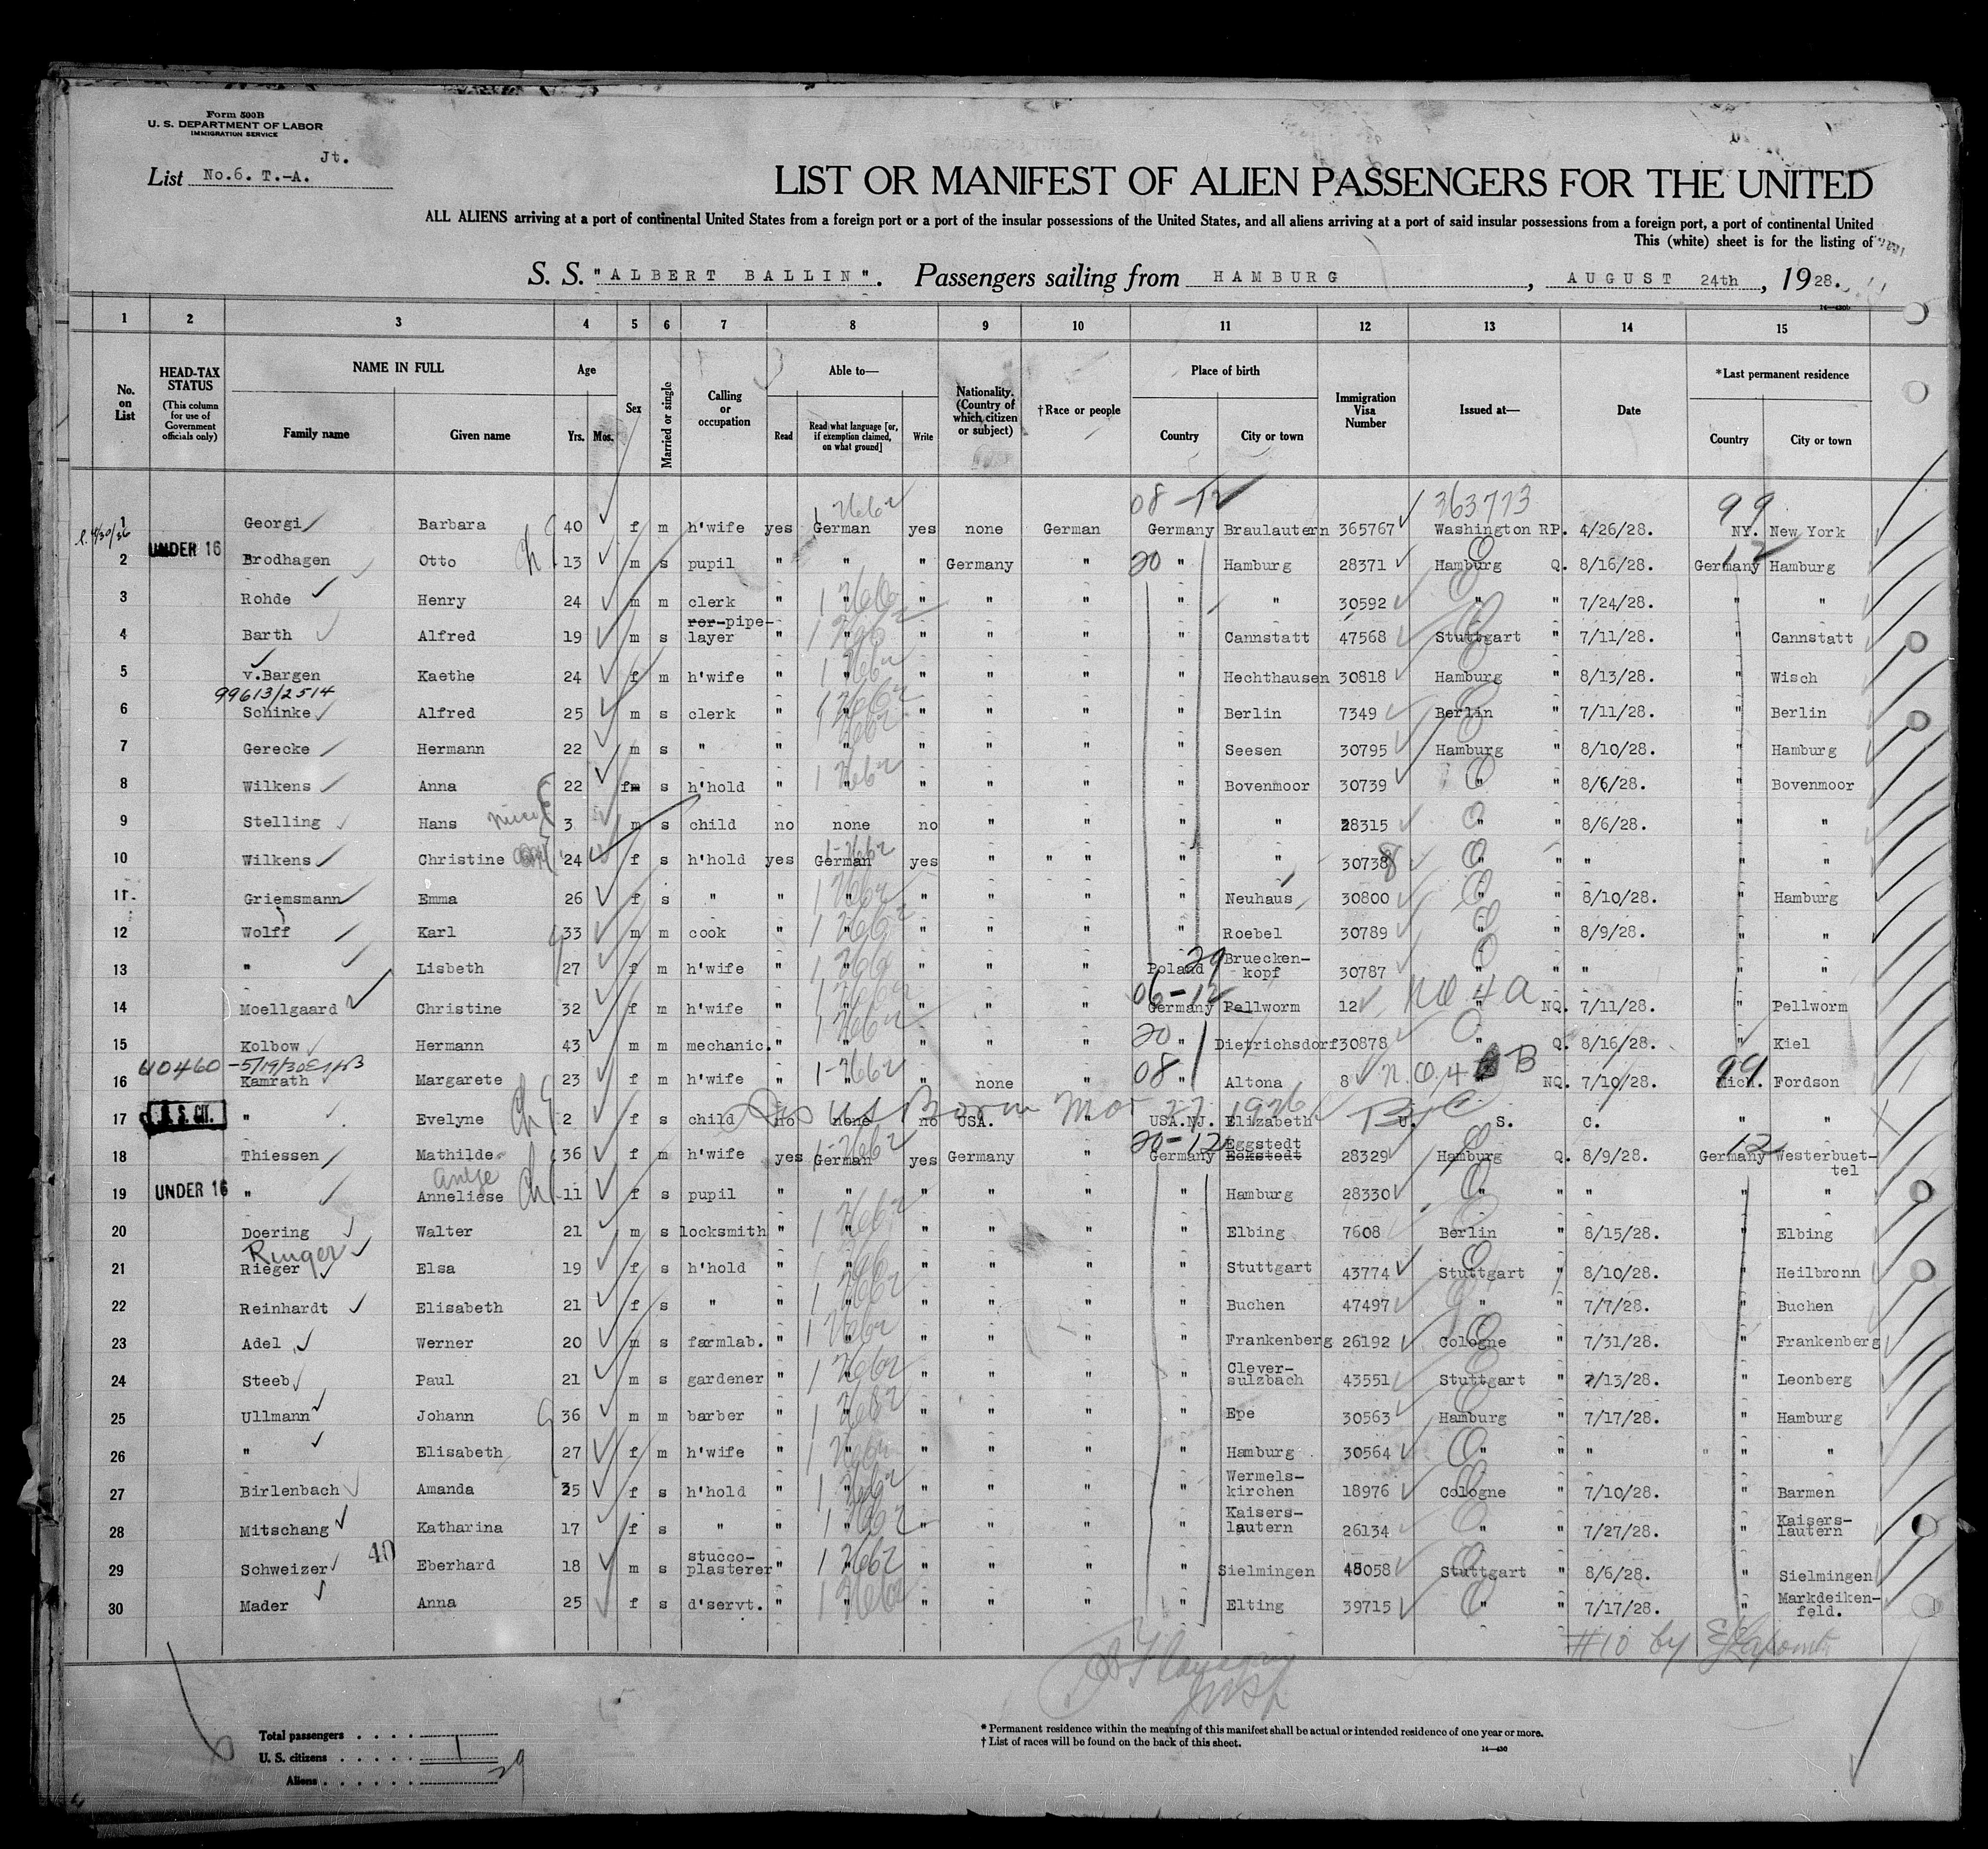 Form 500B
U. S. DEPARTMENT OF LABOR
IMMIGRATION SERVICE
Jt.
List No.6. T.-A.
LIST OR MANIFEST OF ALIEN PASSENGERS FOR THE UNITED
ALL ALIENS arriving at a port of continental United States from a foreign port or a port of the insular possessions of the United States, and all aliens arriving at a port of said insular possessions from a foreign port, a port of continental United
This (white) sheet is for the listing of
S. S. "ALBERT BALLIN". Passengers sailing from HAMBURG, AUGUST 24th, 1928.
1 2 3 4 5 6 7 8 9 10 11 12 13 14 15
No. on List
HEAD-TAX STATUS (This column for use of Government officials only)
NAME IN FULL Family name Given name
Age Yrs. Mos.
Sex
Married or single
Calling or occupation
Able to— Read Read what language [or, if exemption claimed, on what ground] Write
Nationality. (Country of which citizen or subject)
†Race or people
Place of birth Country City or town
Immigration Visa Number
Issued at—
Date
*Last permanent residence Country City or town
08-12 363773 99
1 Georgi Barbara 40 f m h'wife yes German yes none German Germany Braulautern 365767 Washington RP. 4/26/28. NY. New York
UNDER 16
2 Brodhagen Otto 13 m s pupil " " " Germany " 20 " Hamburg 28371 Hamburg Q. 8/16/28. Germany 12 Hamburg
3 Rohde Henry 24 m m clerk " " " " " " " 30592 " " 7/24/28. " "
4 Barth Alfred 19 m s ror-pipe-layer " " " " " " Cannstatt 47568 Stuttgart " 7/11/28. " Cannstatt
5 v.Bargen Kaethe 24 f m h'wife " " " " " " Hechthausen 30818 Hamburg " 8/13/28. " Wisch
99613/2514
6 Schinke Alfred 25 m s clerk " " " " " " Berlin 7349 Berlin " 7/11/28. " Berlin
7 Gerecke Hermann 22 m s " " " " " " " Seesen 30795 Hamburg " 8/10/28. " Hamburg
8 Wilkens Anna 22 f s h'hold " " " " " " Bovenmoor 30739 " " 8/6/28. " Bovenmoor
9 Stelling Hans 3 m s child no none no " " " " 28315 " " 8/6/28. " "
10 Wilkens Christine 24 f s h'hold yes German yes " " " " " 30738 " " " " "
11 Griemsmann Emma 26 f s " " " " " " " Neuhaus 30800 " " 8/10/28. " Hamburg
12 Wolff Karl 33 m m cook " " " " " " Roebel 30789 " " 8/9/28. " "
13 " Lisbeth 27 f m h'wife " " " " " Poland 29 Bruecken-kopf 30787 " " " " "
06-12 NQ 4 a
14 Moellgaard Christine 32 f m h'wife " " " " " Germany Pellworm 12 " NQ. 7/11/28. " Pellworm
15 Kolbow Hermann 43 m m mechanic. " " " " " 20 " Dietrichsdorf 30878 " Q. 8/16/28. " Kiel
40460
16 Kamrath Margarete 23 f m h'wife " " " none " 08 " Altona 8 n.Q.4 B NQ. 7/10/28. Mich. 99 Fordson
U. S. CIT.
17 " Evelyne 2 f s child no none no USA. " USA.NJ. Elizabeth U. S. C. " "
Born Mar 27, 1926
18 Thiessen Mathilde 36 f m h'wife yes German yes Germany " 20-12 Germany Eggstedt Eckstedt 28329 Hamburg Q. 8/9/28. Germany 12 Westerbuet-tel
Antje
UNDER 16
19 " Anneliese 11 f s pupil " " " " " " Hamburg 28330 " " " " "
20 Doering Walter 21 m s locksmith " " " " " " Elbing 7608 Berlin " 8/15/28. " Elbing
Ringer
21 Rieger Elsa 19 f s h'hold " " " " " " Stuttgart 43774 Stuttgart " 8/10/28. " Heilbronn
22 Reinhardt Elisabeth 21 f s " " " " " " " Buchen 47497 " " 7/7/28. " Buchen
23 Adel Werner 20 m s farmlab. " " " " " " Frankenberg 26192 Cologne " 7/31/28. " Frankenberg
24 Steeb Paul 21 m s gardener " " " " " " Clever-sulzbach 43551 Stuttgart " 7/13/28. " Leonberg
25 Ullmann Johann 36 m m barber " " " " " " Epe 30563 Hamburg " 7/17/28. " Hamburg
26 " Elisabeth 27 f m h'wife " " " " " " Hamburg 30564 " " " " "
27 Birlenbach Amanda 35 f s h'hold " " " " " " Wermels-kirchen 18976 Cologne " 7/10/28. " Barmen
28 Mitschang Katharina 17 f s " " " " " " " Kaisers-lautern 26134 " " 7/27/28. " Kaisers-lautern
40
29 Schweizer Eberhard 18 m s stucco-plasterer " " " " " " Sielmingen 48058 Stuttgart " 8/6/28. " Sielmingen
30 Mader Anna 25 f s d'servt. " " " " " " Elting 39715 " " 7/17/28. " Markdeiken-feld.
#10 by
Insp
Total passengers . . . .
U. S. citizens . . . . . 1
Aliens . . . . . . 29
* Permanent residence within the meaning of this manifest shall be actual or intended residence of one year or more.
† List of races will be found on the back of this sheet.
14—430